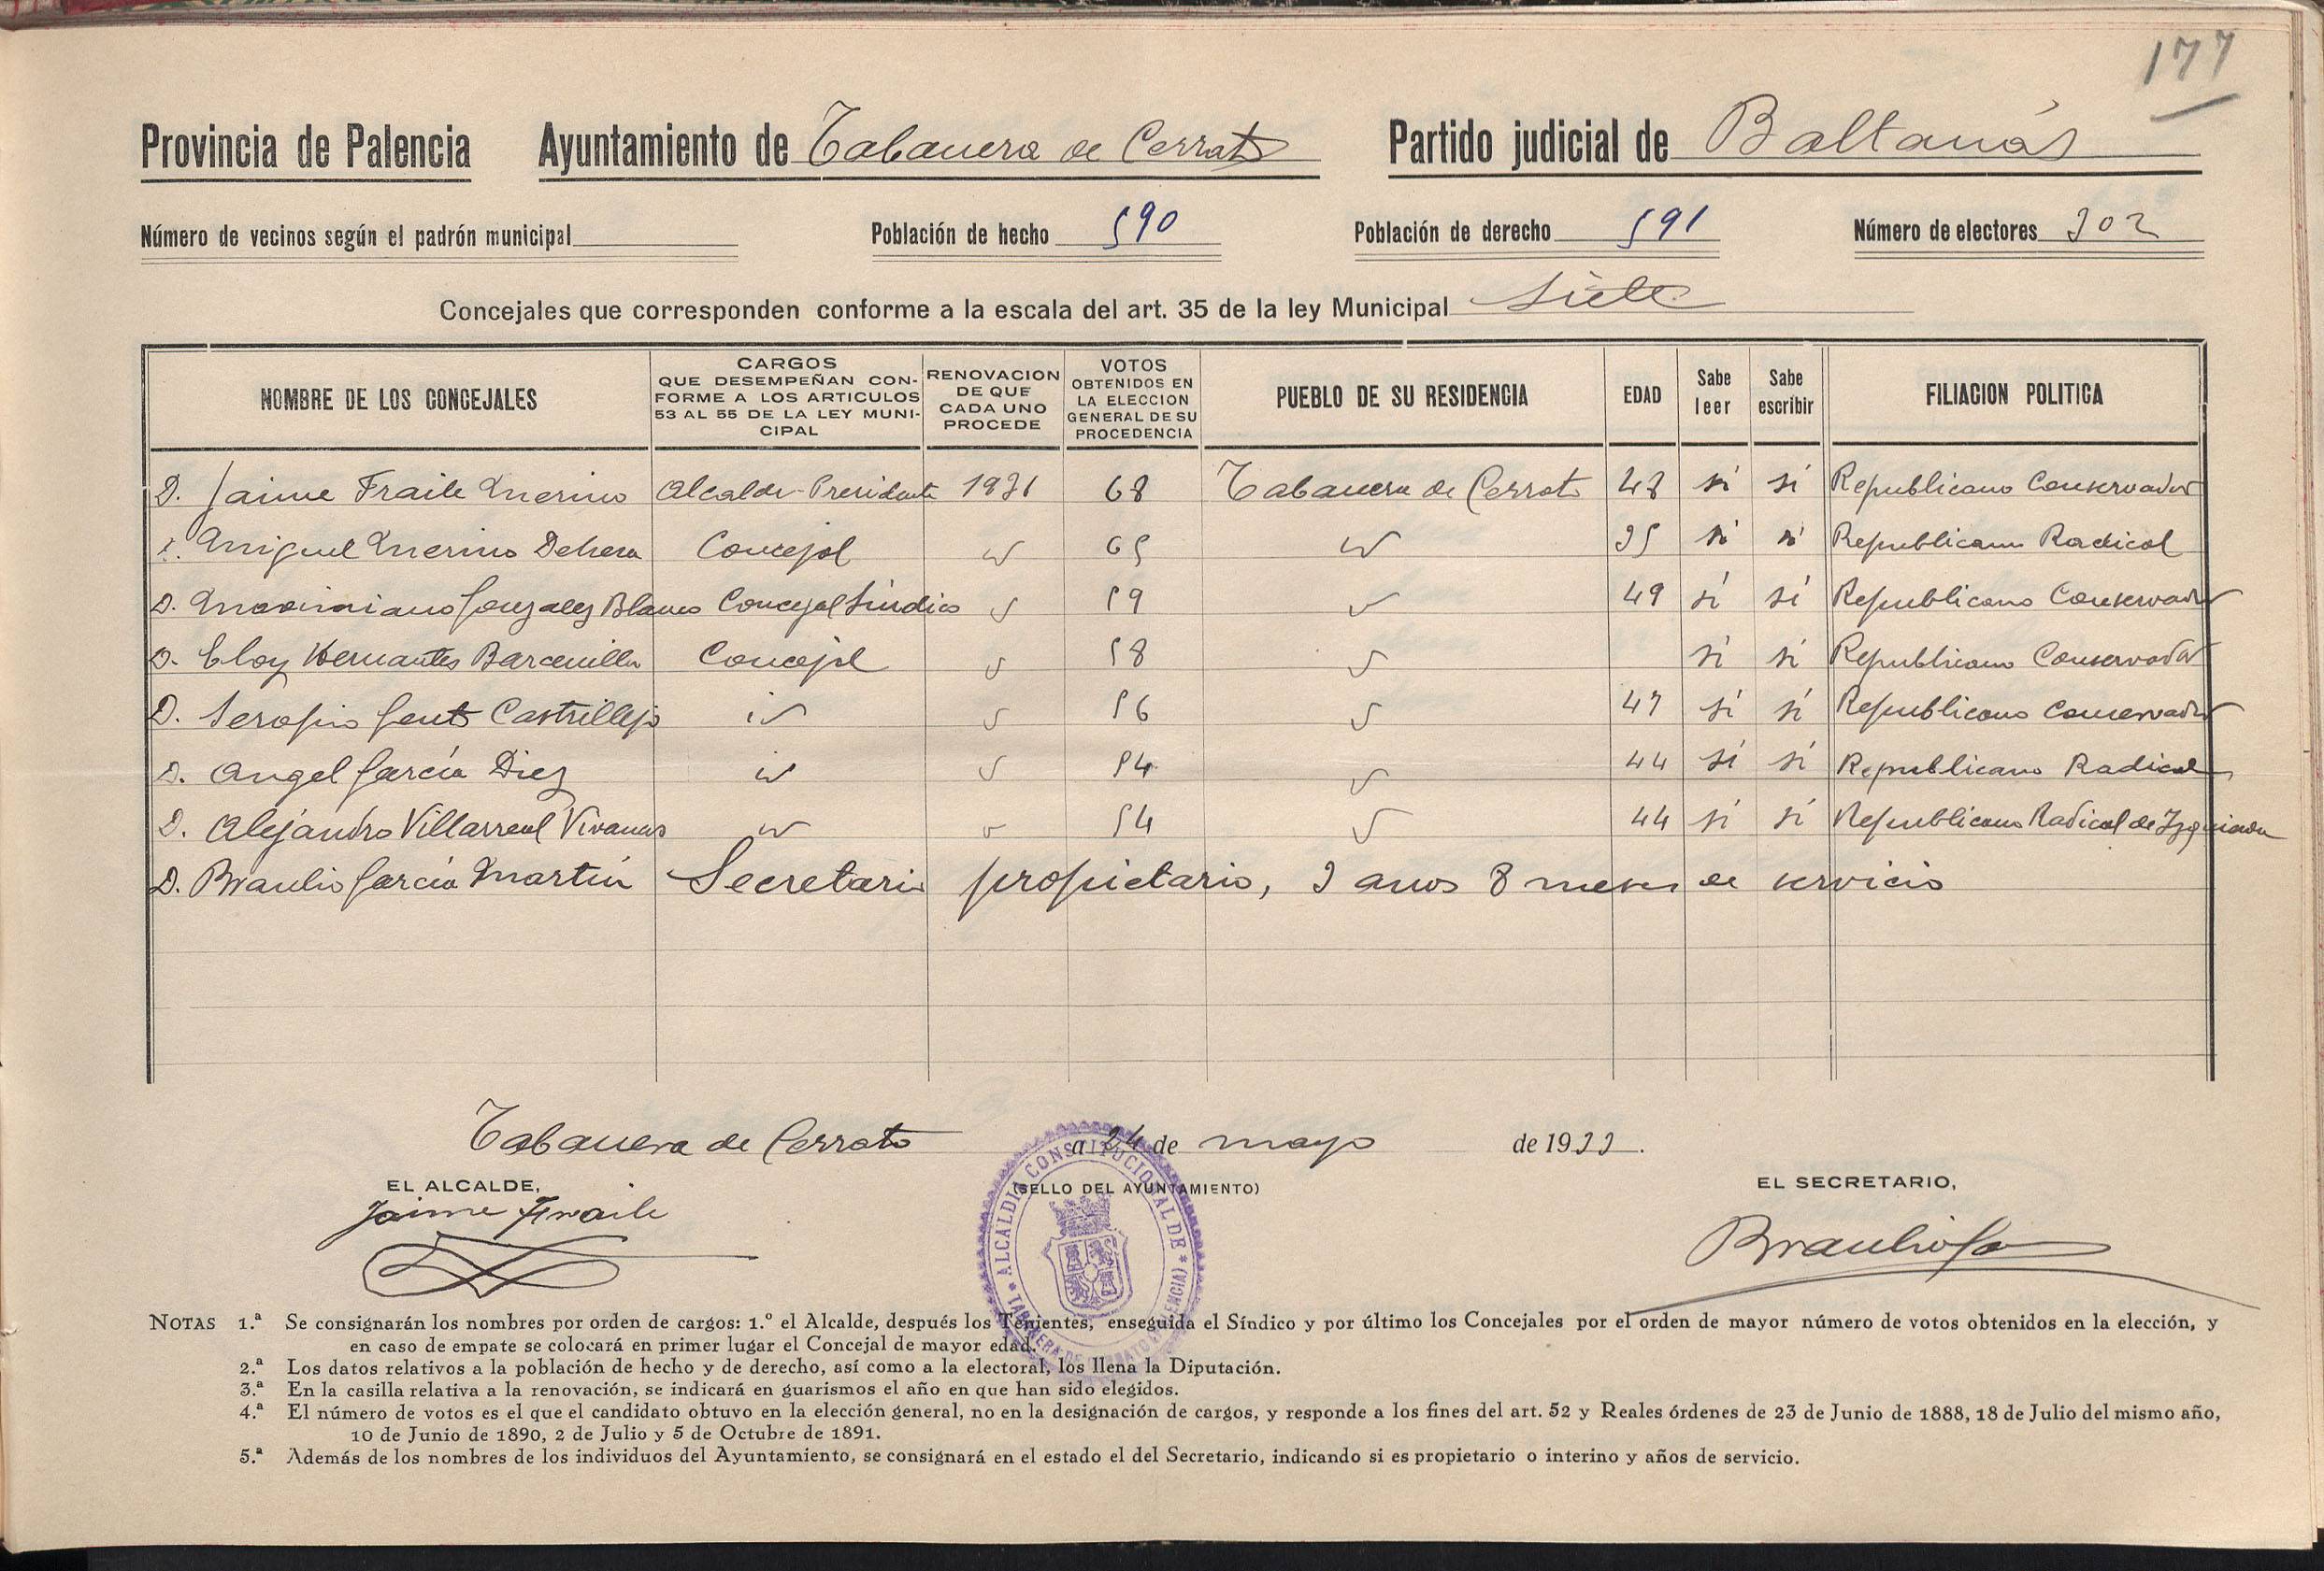 177
Provincia de Palencia Ayuntamiento de Tabanera de Cerrato Partido judicial de Baltanás
Número de vecinos según el padrón municipal Población de hecho 590 Población de derecho 591 Número de electores 302
Concejales que corresponden conforme a la escala del art. 35 de la ley Municipal Siete
NOMBRE DE LOS CONCEJALES CARGOS QUE DESEMPEÑAN CONFORME A LOS ARTICULOS 53 AL 55 DE LA LEY MUNICIPAL RENOVACION DE QUE CADA UNO PROCEDE VOTOS OBTENIDOS EN LA ELECCION GENERAL DE SU PROCEDENCIA PUEBLO DE SU RESIDENCIA EDAD Sabe leer Sabe escribir FILIACION POLITICA
D. Jaime Fraile Merino Alcalde-Presidente 1931 68 Tabanera de Cerrato 48 si si Republicano Conservador
D. Miguel Merino Dehesa Concejal 65 35 si si Republicano Radical
D. Maximiano Gonzalez Blanco Concejal Síndico 59 49 si si Republicano Conservador
D. Eloy Barcenilla Concejal 58 si si Republicano Conservador
D. Serafin Castrillejo 56 47 si si Republicano Conservador
D. Angel García Diez 54 44 si si Republicano Radical
D. Alejandro Villarreal 54 44 si si Republicano Radical de Izquierda
D. Braulio García Martín Secretario propietario, 3 años 8 meses de servicio
Tabanera de Cerrato a 24 de mayo de 1933.
EL ALCALDE, (SELLO DEL AYUNTAMIENTO) EL SECRETARIO,
Jaime Fraile
ALCALDIA CONSTITUCIONAL DE * TABANERA DE CERRATO (PALENCIA) *
NOTAS 1.ª Se consignarán los nombres por orden de cargos: 1.º el Alcalde, después los Tenientes, enseguida el Síndico y por último los Concejales por el orden de mayor número de votos obtenidos en la elección, y
en caso de empate se colocará en primer lugar el Concejal de mayor edad.
2.ª Los datos relativos a la población de hecho y de derecho, así como a la electoral, los llena la Diputación.
3.ª En la casilla relativa a la renovación, se indicará en guarismos el año en que han sido elegidos.
4.ª El número de votos es el que el candidato obtuvo en la elección general, no en la designación de cargos, y responde a los fines del art. 52 y Reales órdenes de 23 de Junio de 1888, 18 de Julio del mismo año,
10 de Junio de 1890, 2 de Julio y 5 de Octubre de 1891.
5.ª Además de los nombres de los individuos del Ayuntamiento, se consignará en el estado el del Secretario, indicando si es propietario o interino y años de servicio.